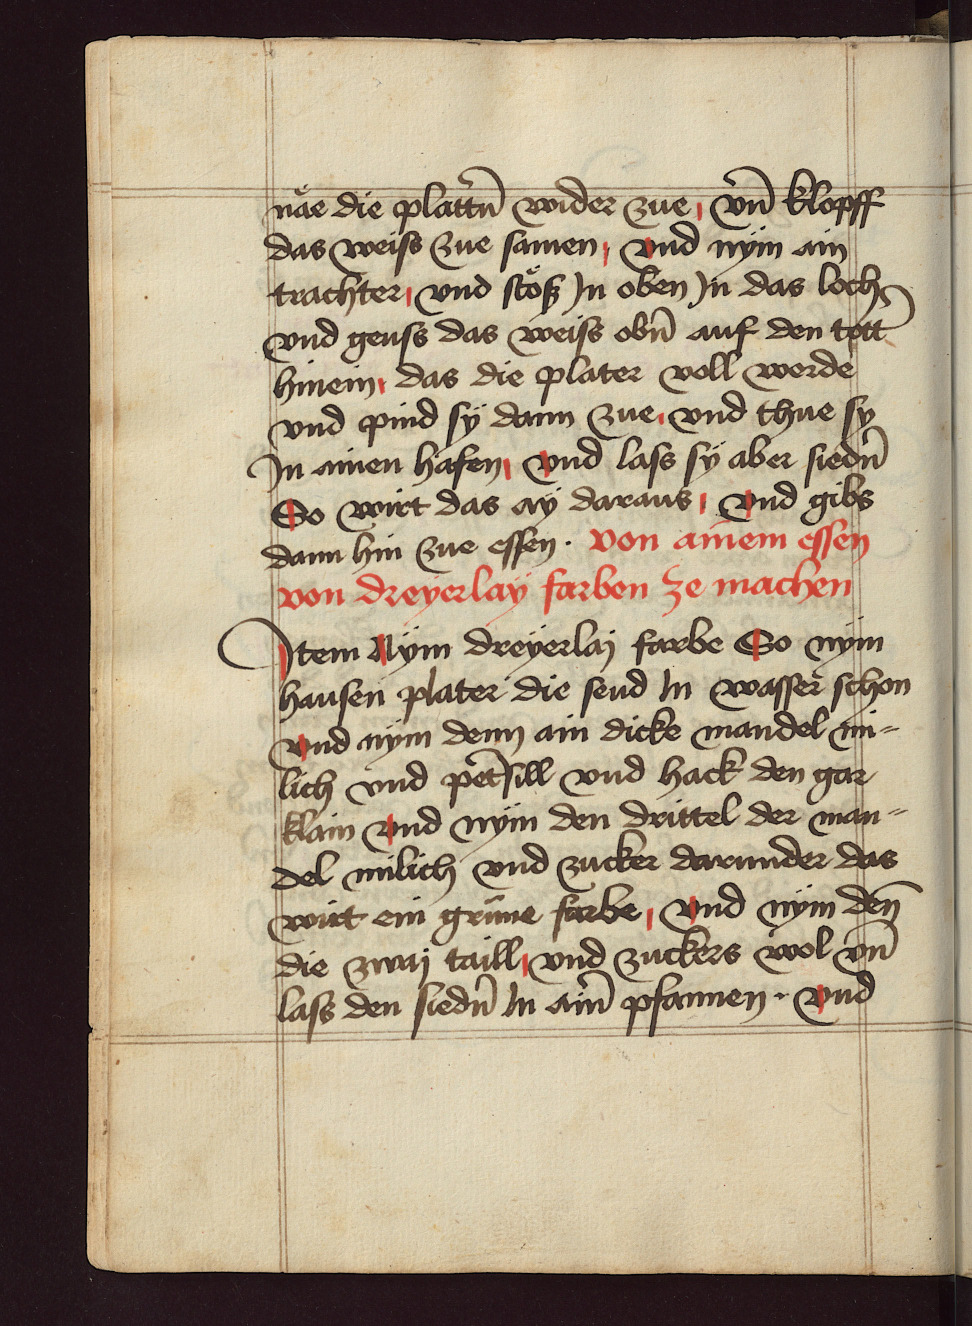 näe die plattern̄ wider zue, vn̄ klopff
das weiss zue samen, vnd nÿm ain
trachter, vnd stöß In oben In das loch
vnd geuss das weiss obn̄ auf den tott̄
hinein, das die plater voll werde
vnd pind sÿ dann zue, vnd thue sy
In ainen hafen, vnd lass sÿ aber siedn̄
So wirt das aÿ daraus, vnd gibs
dann hin zue essen. von ainem essen
von dreÿerlaÿ farben ze machen
Item Nÿm dreÿerlaj farbe So nÿm
hausen plater die seud In wasser schon
vnd nÿm denn ain dicke mandel mi=
lich vnd petersill vnd hack den gar
klain vnd nÿm den drittel der man=
del milich vnd zucker darunder das
wirt ein grüne farbe, vnd nÿm den̄
die zwaj taill, vnd zuckers wol vn̄
lass den siedn̄ In ain̄ pfannen. vnd